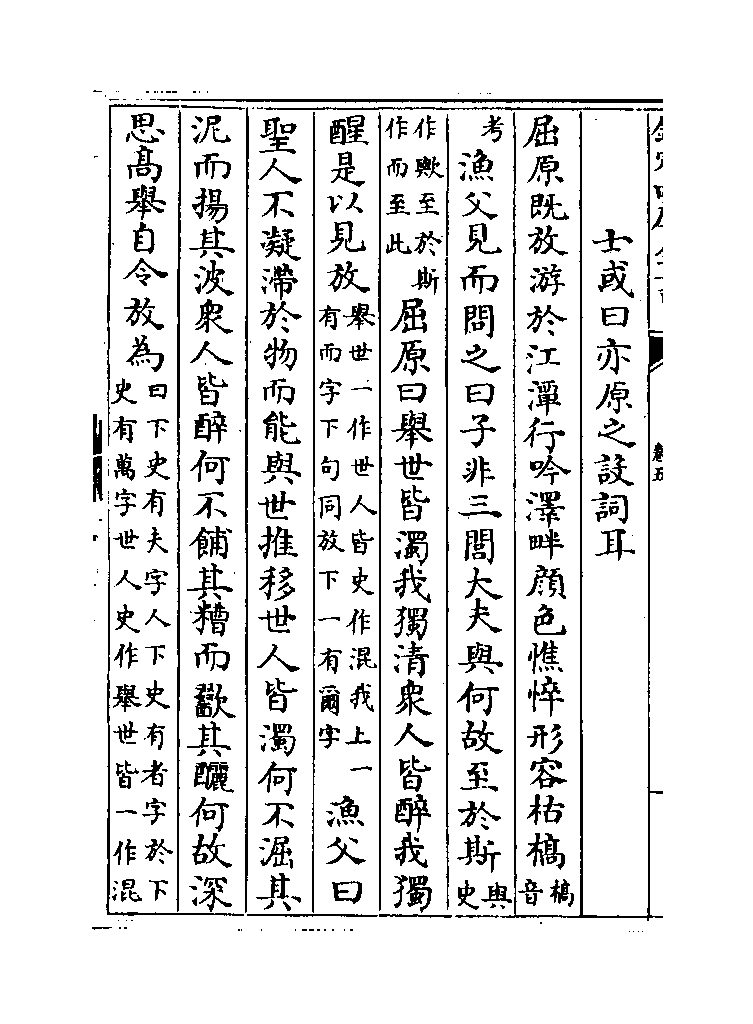 欽定四庫全書 卷五
士或曰亦原之設詞耳
屈原既放游於江潭行吟澤畔顔色憔悴形容枯槁槁音
考漁父見而問之曰子非三閭大夫與何故至於斯與史
作歟至於斯作而至此屈原曰舉世皆濁我獨清衆人皆醉我獨
醒是以見放舉世一作世人皆史作混我上一有而字下句同放下一有爾字漁父曰
聖人不凝滯於物而能與世推移世人皆濁何不淈其
泥而揚其波衆人皆醉何不餔其糟而歠其釃何故深
思高舉自令放為曰下史有夫字人下史有者字於下史有萬字世人史作舉世皆一作混